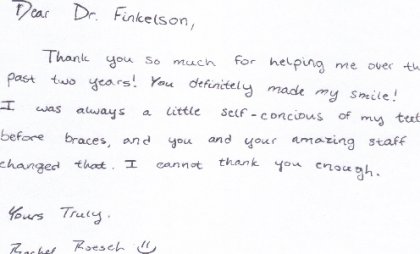 Dear Dr. Finkelson,
Thank you so much for helping me over th
past two years! You definitely made my smile!
I was always a little self-concious of my teet
before braces, and you and your amazing staff
changed that. I cannot thank you enough.
Yours Truly.
Rachel Roesch